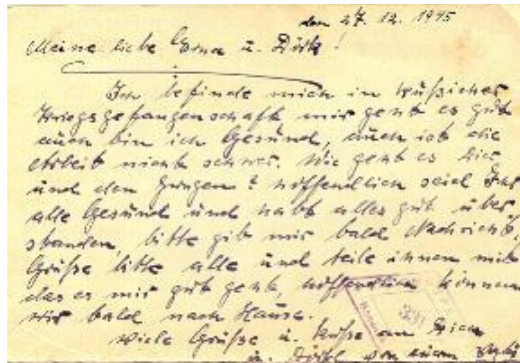 den 27. 12. 1945
Meine liebe Erna u.
Ich befinde mich in rußischer
Kriegsgefangenschaft mir geht es gut
auch bin ich Gesund, auch ist die
Arbeit nicht schwer. Wie geht es Dir
und den Jungen? hoffendlich seid Ihr
alle Gesund und habt alles gut über
standen, bitte gib mir bald Nachricht,
Grüße bitte alle und teile ihnen mit
das es mir gut geht, hoffendlich können
wir bald nach Hause.
Viele Grüße u. Küße an
u. von euern